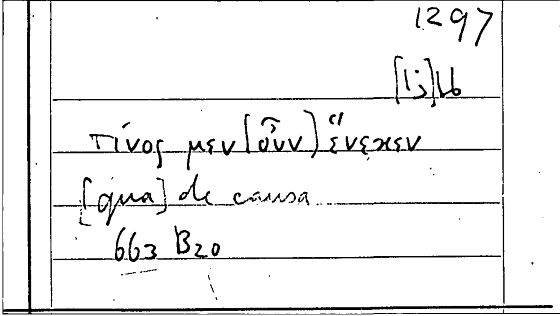 1297
[Ij]16
τίνος μεν (οὖν) ἕνεκεν
[qua] de causa
663 B20